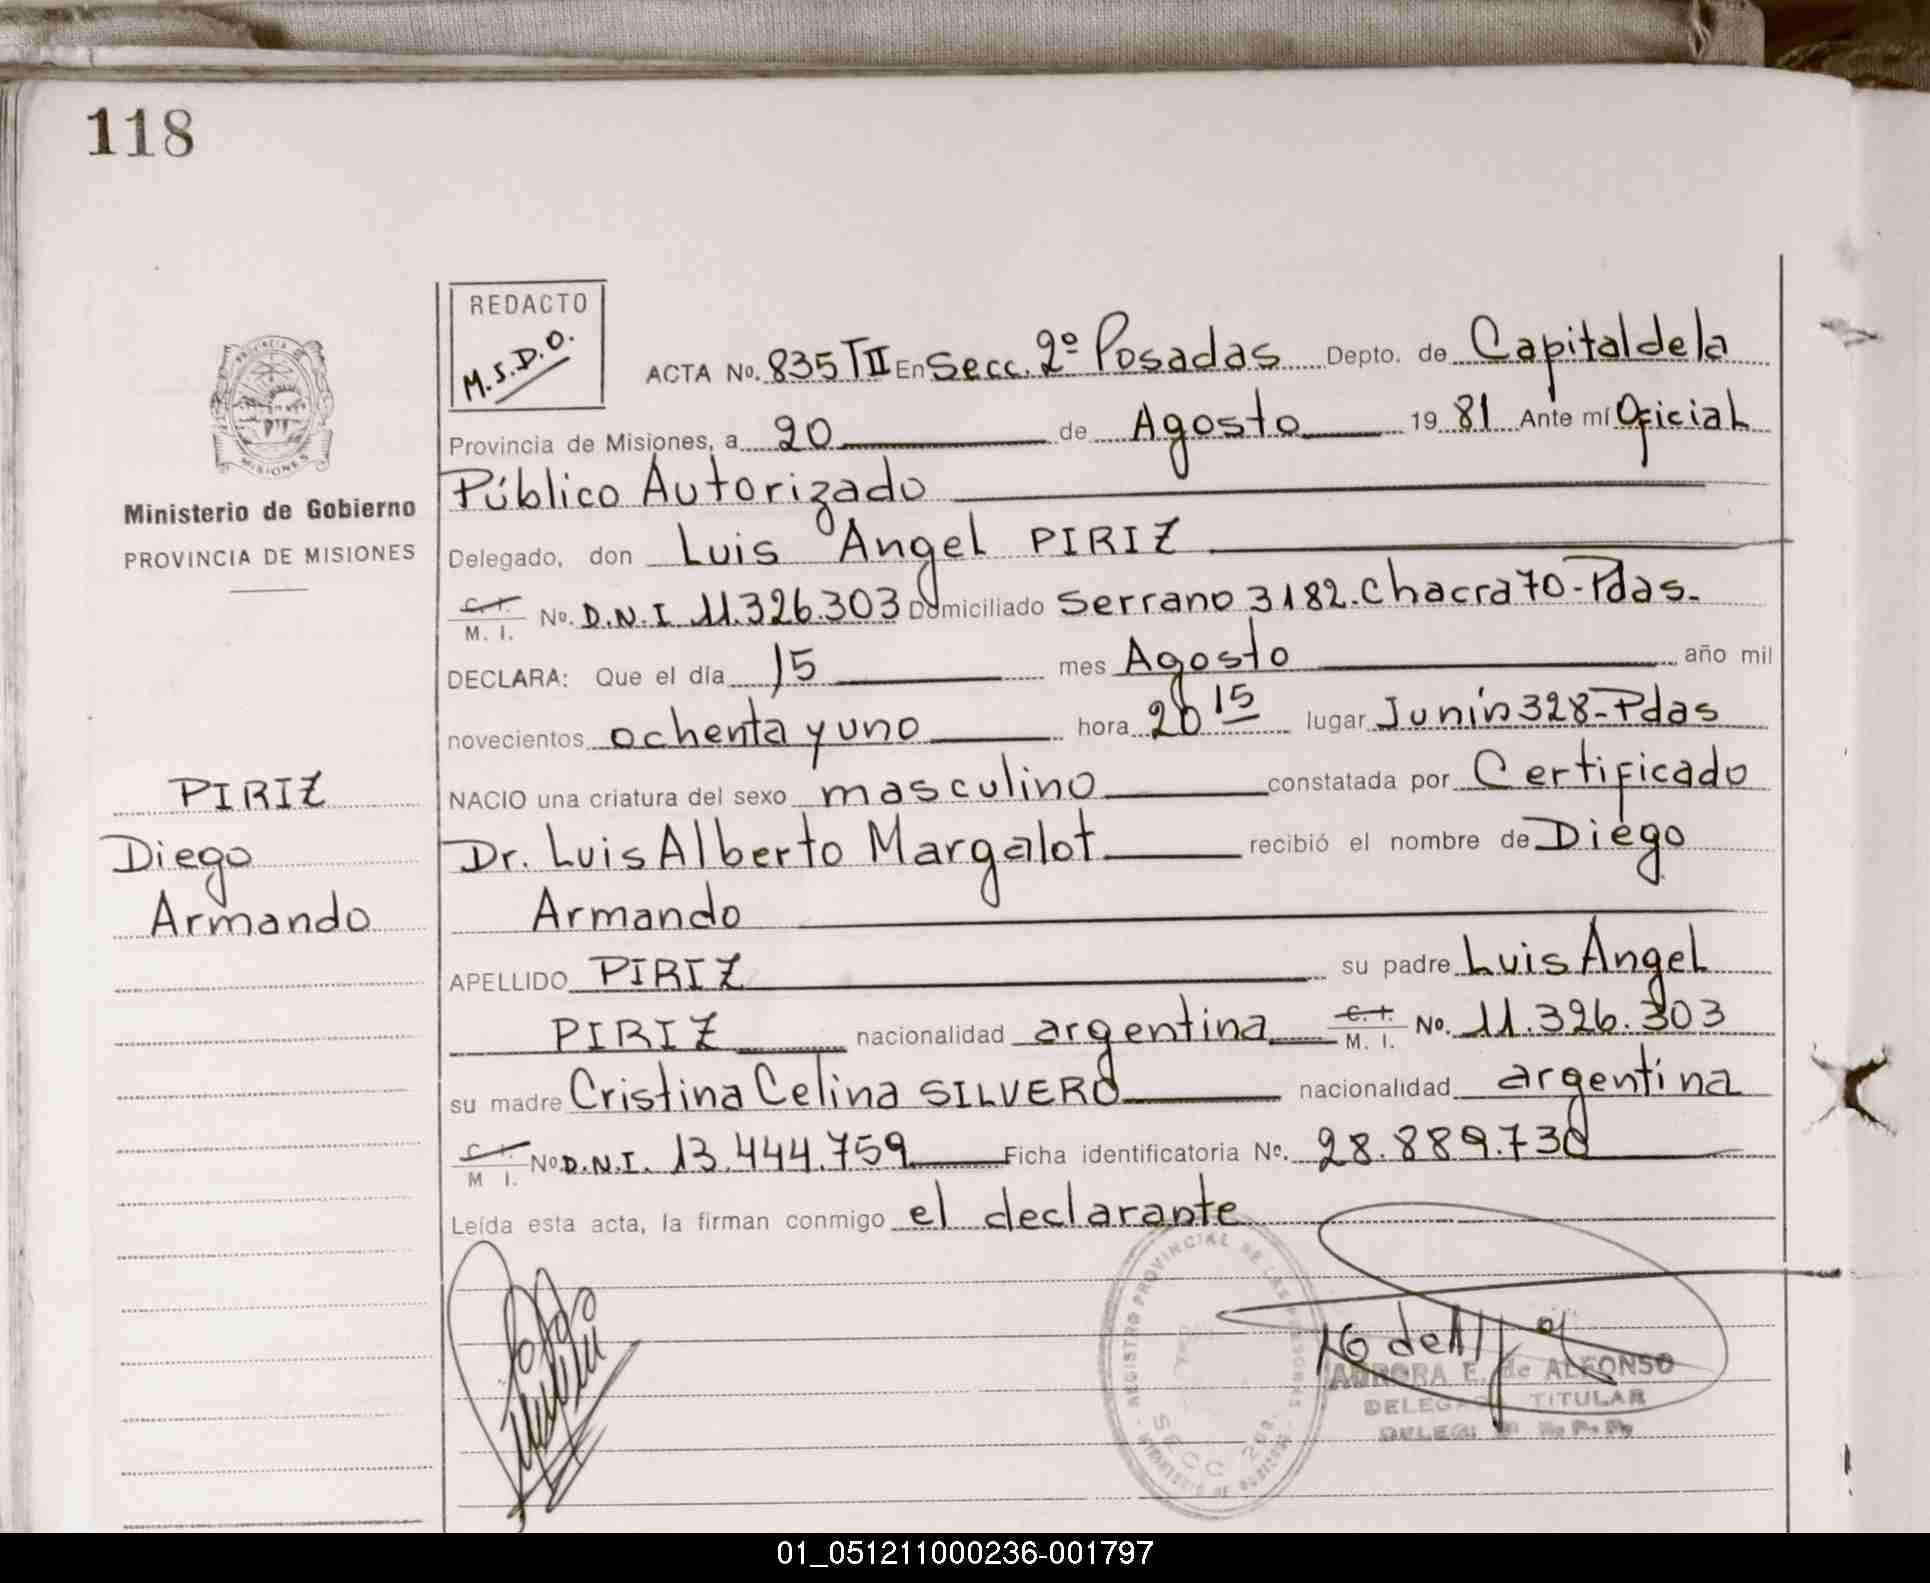 118
REDACTO
M.S.D.O.
ACTA No. 835 TII En Secc. 2º Posadas Depto. de Capital de la
Provincia de Misiones, a 20 de Agosto 19 81 Ante mí Oficial
Público Autorizado
Delegado, don Luis Angel PIRIZ
C. I. M. I. No. D.N.I 11.326.303 Domiciliado Serrano 3182. Chacra 70-Pdas.
DECLARA: Que el día 15 mes Agosto año mil
novecientos ochenta y uno hora 20 15 lugar Junín 328-Pdas
NACIO una criatura del sexo masculino constatada por Certificado
Dr. Luis Alberto Margalot recibió el nombre de Diego
Armando
APELLIDO PIRIZ su padre Luis Angel
PIRIZ nacionalidad argentina C. I. M. I. No. 11.326.303
su madre Cristina Celina SILVERO nacionalidad argentina
C. I. M I. No D.N.I. 13.444.759 Ficha identificatoria No. 28.889.730
Leída esta acta, la firman conmigo el declarante
PROVINCIA DE
MISIONES
Ministerio de Gobierno
PROVINCIA DE MISIONES
PIRIZ
Diego
Armando
REGISTRO PROVINCIAL DE LAS PERSONAS
SECC 2da.
MINISTERIO DE GOBIERNO
AURORA E. de ALFONSO
DELEGADO TITULAR
01_051211000236-001797